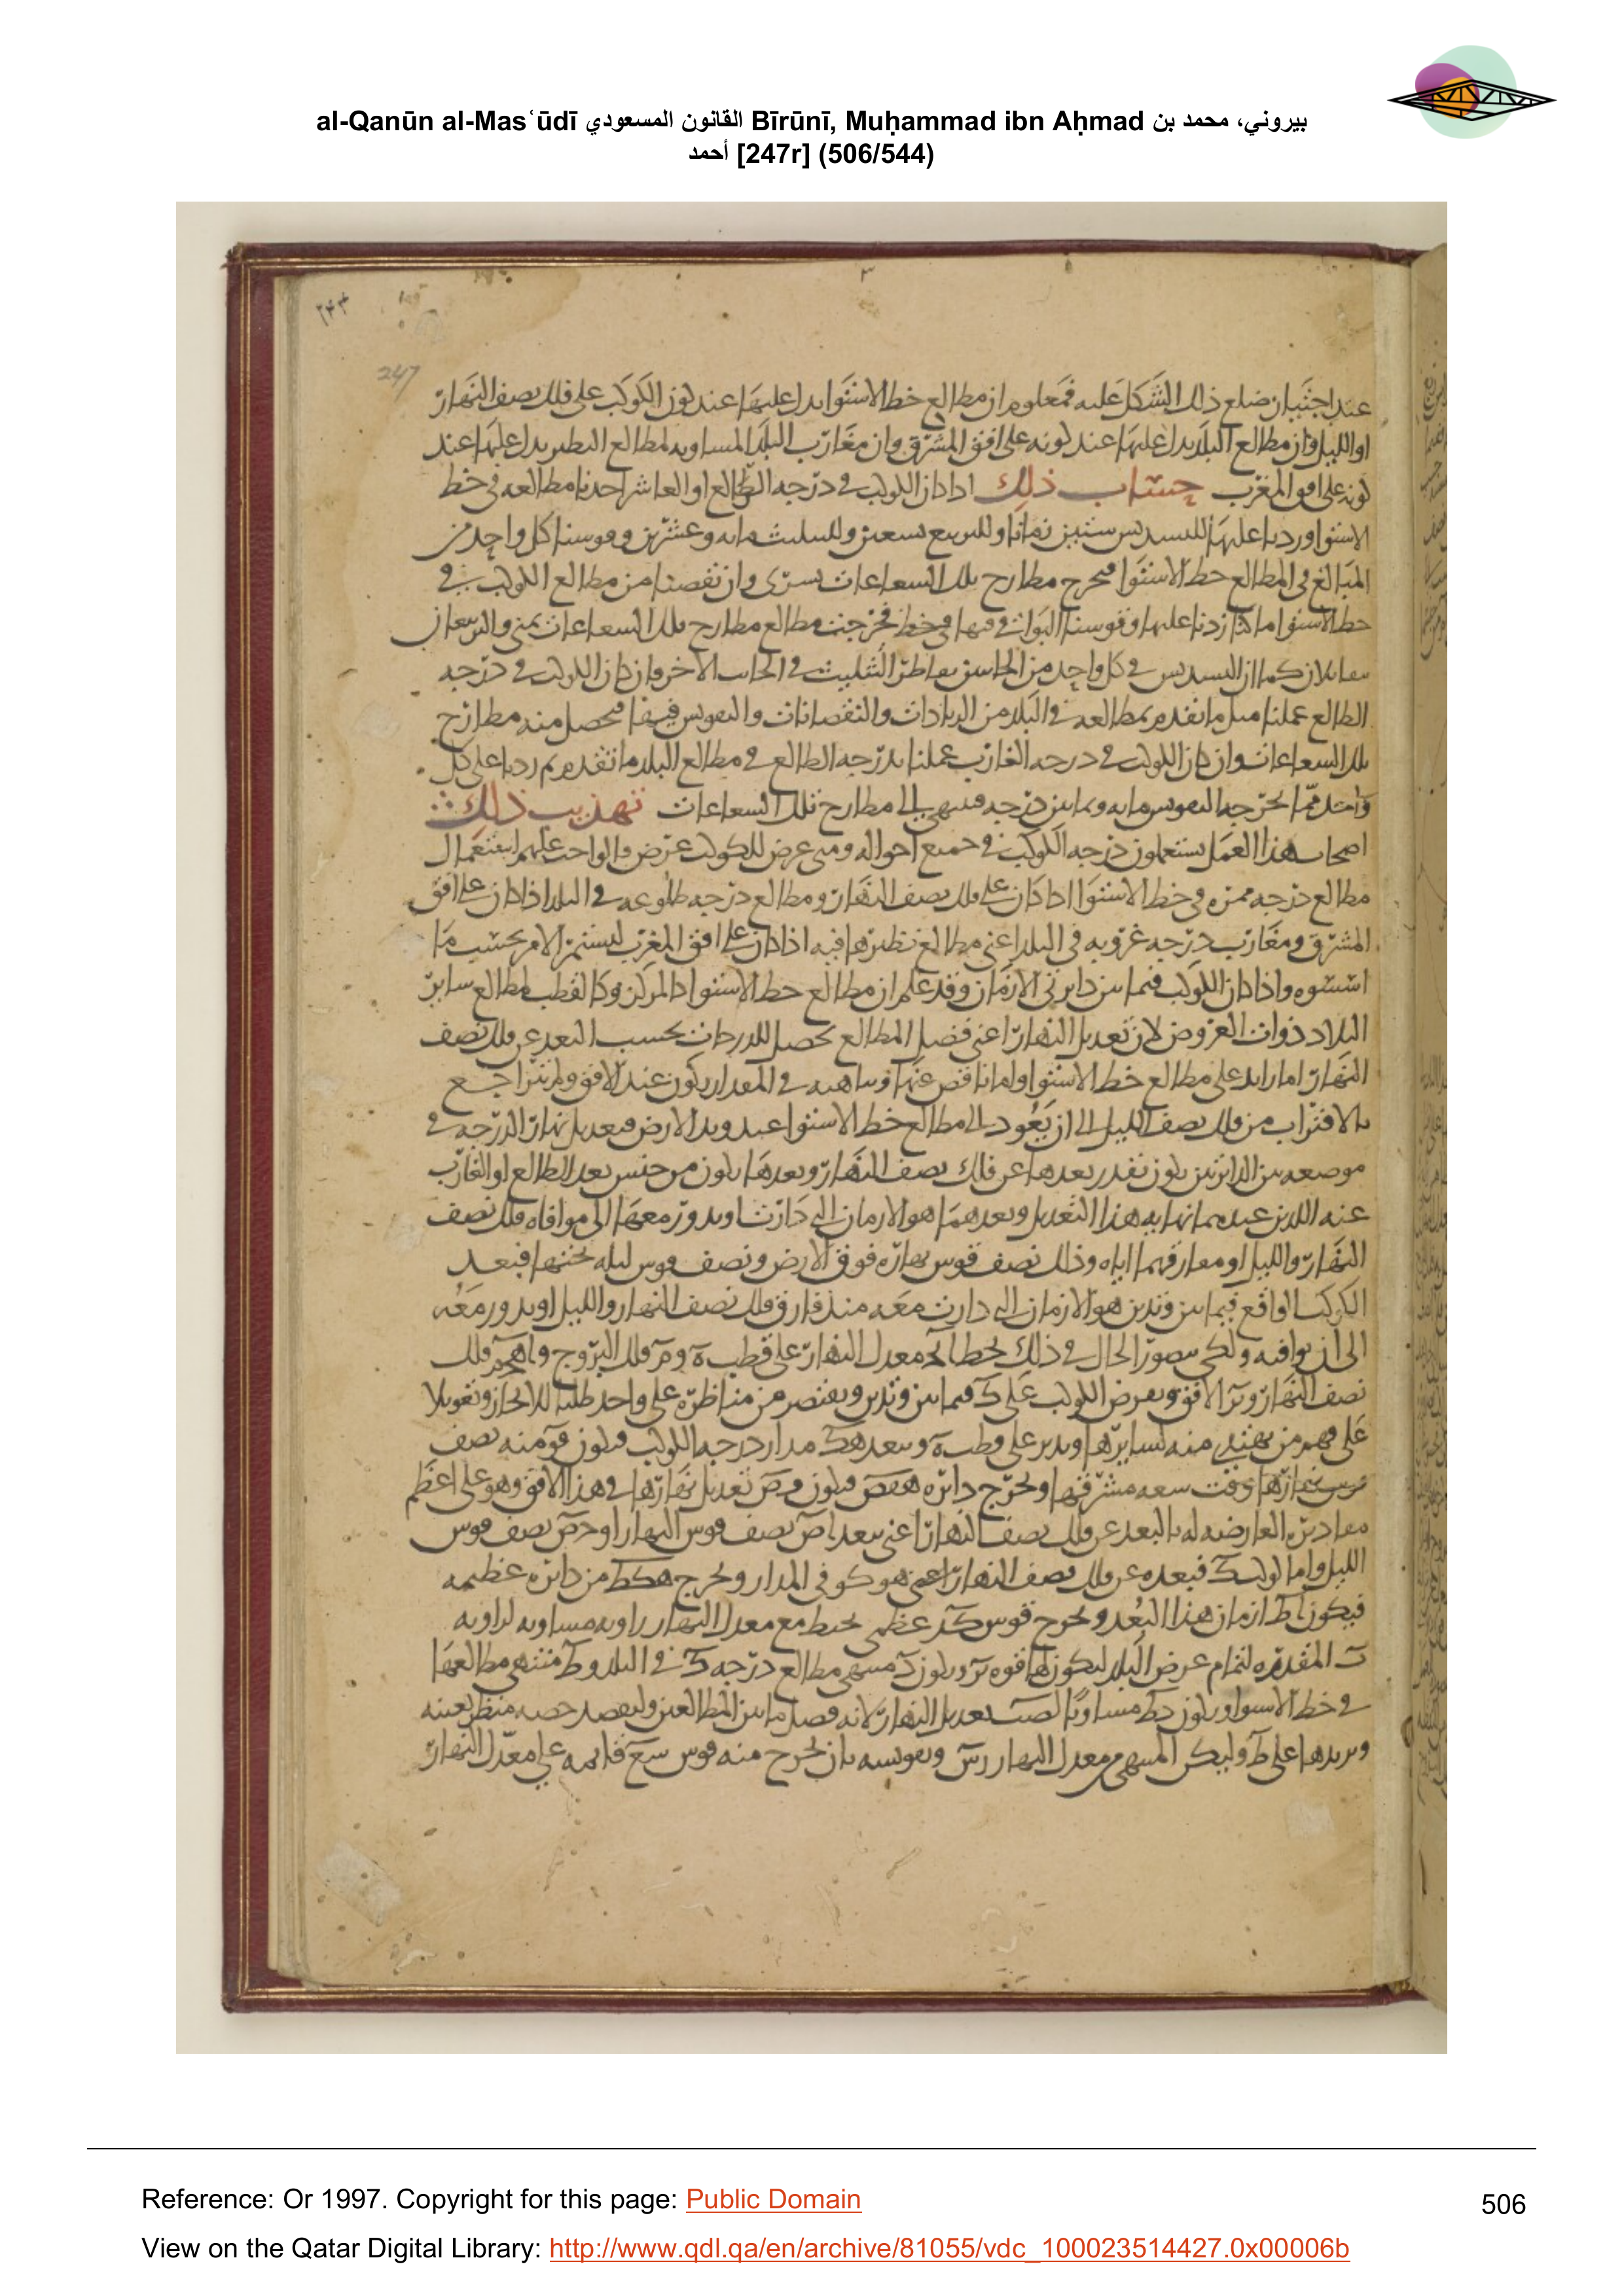 al-Qanūn al-Masʿūdī القانون المسعودي Bīrūnī, Muḥammad ibn Aḥmad بيروني، محمد بن
أحمد [247r] (506/544)
247
عند اجتيان ضلع ذلك الشكل عليه فمعلوم ان مطالع خط الاستوا بدل عليها عند كون الكوكب على فلك نصف النهار
او الليل وان مطالع البلد بدل عليها عند كونه على افق المشرق وان مغارب البلد المساويه لمطالع النظير بدل عليها عند
كونه على افق المغرب حساب ذلك اذا كان الكوكب في درجه الطالع او العاشر اخذنا مطالعه في خط
الاستوا وزدنا عليها للتسديس ستين زمانا وللتربيع تسعين وللتثليث مايه وعشرين وقوسنا كل واحد من
المبالغ في المطالع خط الاستوا فيخرج مطارح تلك الشعاعات يسرى وان نقصنا من مطالع الكوكب في
خط الاستوا ما كنا زدنا عليها وقوسنا البواقي فيها في خط فخرجت مطالع مطارح تلك الشعاعات يمنى والتربيعان
متقابلان كما ان التسديس في كل واحد من الجانبين يقاطر التثليث في الجانب الاخر وان كان الكوكب في درجه
الطالع عملنا مثل ما تقدم بمطالعه في البلد من الزيادات والنقصانات والتقويس فيها فيحصل منه مطارح
تلك الشعاعات وان كان الكوكب في درجه الغارب عملنا بدرجه الطالع في مطالع البلد ما تقدم ثم زدنا على كل
واحد مما يخرجه التقويس مايه وثمانين درجه فينتهي الى مطارح تلك الشعاعات تهذيب ذلك
اصحاب هذا العمل يستعملون درجه الكوكب في جميع احواله ومتى عرض للكوكب عرض فالواجب عليهم استعمال
مطالع درجه ممره في خط الاستوا اذا كان على فلك نصف النهار ومطالع درجه طلوعه في البلد اذا كان على افق
المشرق ومغارب درجه غروبه في البلد اعني مطالع نظيرها فيه اذا كان على افق المغرب ليستمر الامر بحسب ما
اسسوه واذا كان الكوكب فيما بين دايرتي الازمان وقد علم ان مطالع خط الاستوا كالمركز وكالقطب لمطالع ساير
البلاد ذوات العروض لان تعديل النهار اعني فضل المطالع يحصل للدرجات بحسب البعد عن فلك نصف
النهار اما زايد على مطالع خط الاستوا واما ناقص عنها وتناهيه في المقدار يكون عند الافق ولم يتراجع
بالاقتراب من فلك نصف الليل الى ان يعود الى مطالع خط الاستوا عند وتد الارض فتعديل نهار الدرجه في
موضعه بين الدايرتين يكون بقدر بعدها عن فلك نصف النهار وبعدها يكون من جنس بعد الطالع او الغارب
عنه اللذين عندهما نهايه هذا التعديل وبعدهما هو الازمان التي دارت او يدور معها الى موافاه فلك نصف
النهار والليل او مفارقهما اياه وذلك نصف قوس نهاره فوق الارض ونصف قوس ليله تحتها فبعد
الكوكب الواقع فيما بين وتدين هو الازمان التي دارت معه منذ فارق فلك نصف النهار والليل او يدور معه
الى ان يوافيه ولكي يتصور الحال في ذلك
نصف النهار الافق ونفرض الكوكب على ك فيما بين وتدين ونقتصر من مناظره على واحد طلبا للايجاز وتعويلا
على فهم من يهتدي منه لسايرها وندير على قطب ه وببعد هك مدار درجه الكوكب فيكون منه نصف
قوس نهارها سعه مشرقها ونخرج دايره فيكون تعديل نهارها في هذا الافق وهو على اعظم
مقاديره العارضه له بالبعد عن فلك نصف النهار اعني ببعد نصف قوس النهار او نصف قوس
الليل واما كوكب ك فبعده عن فلك نصف النهار اعني هو كو في المدار ونخرج هكط من دايره عظيمه
فيكون اط ازمان هذا البعد ونخرج قوس عظمى يحيط مع معدل النهار بزاويه مساويه لزاويه
المقدره لتمام عرض البلد ليكون منتهى مطالع درجه ك في البلد وط منتهى مطالعها
في خط الاستوا ويكون مساويا تعديل النهار لانه فضل ما بين المطالعين وليقصد حصه منظر بعينه
ونزيدها على ط وليكن المنتهى من معدل النهار ونقوسه بان نخرج منه قوس قايمه على معدل النهار
Reference: Or 1997. Copyright for this page: Public Domain
506
View on the Qatar Digital Library: http://www.qdl.qa/en/archive/81055/vdc_100023514427.0x00006b